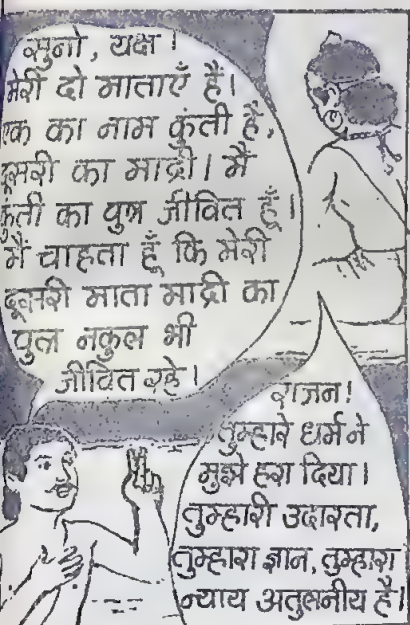 सुनो, यक्ष !
मेरी दो माताएँ हैं।
एक का नाम कुंती है,
दूसरी का माद्री। मैं
कुंती का पुत्र जीवित हूँ।
मैं चाहता हूँ कि मेरी
दूसरी माता माद्री का
पुत्र नकुल भी
जीवित रहे !
राजन !
तुम्हारे धर्म ने
मुझे हरा दिया।
तुम्हारी उदारता,
तुम्हारा ज्ञान, तुम्हारा
न्याय अतुलनीय है।